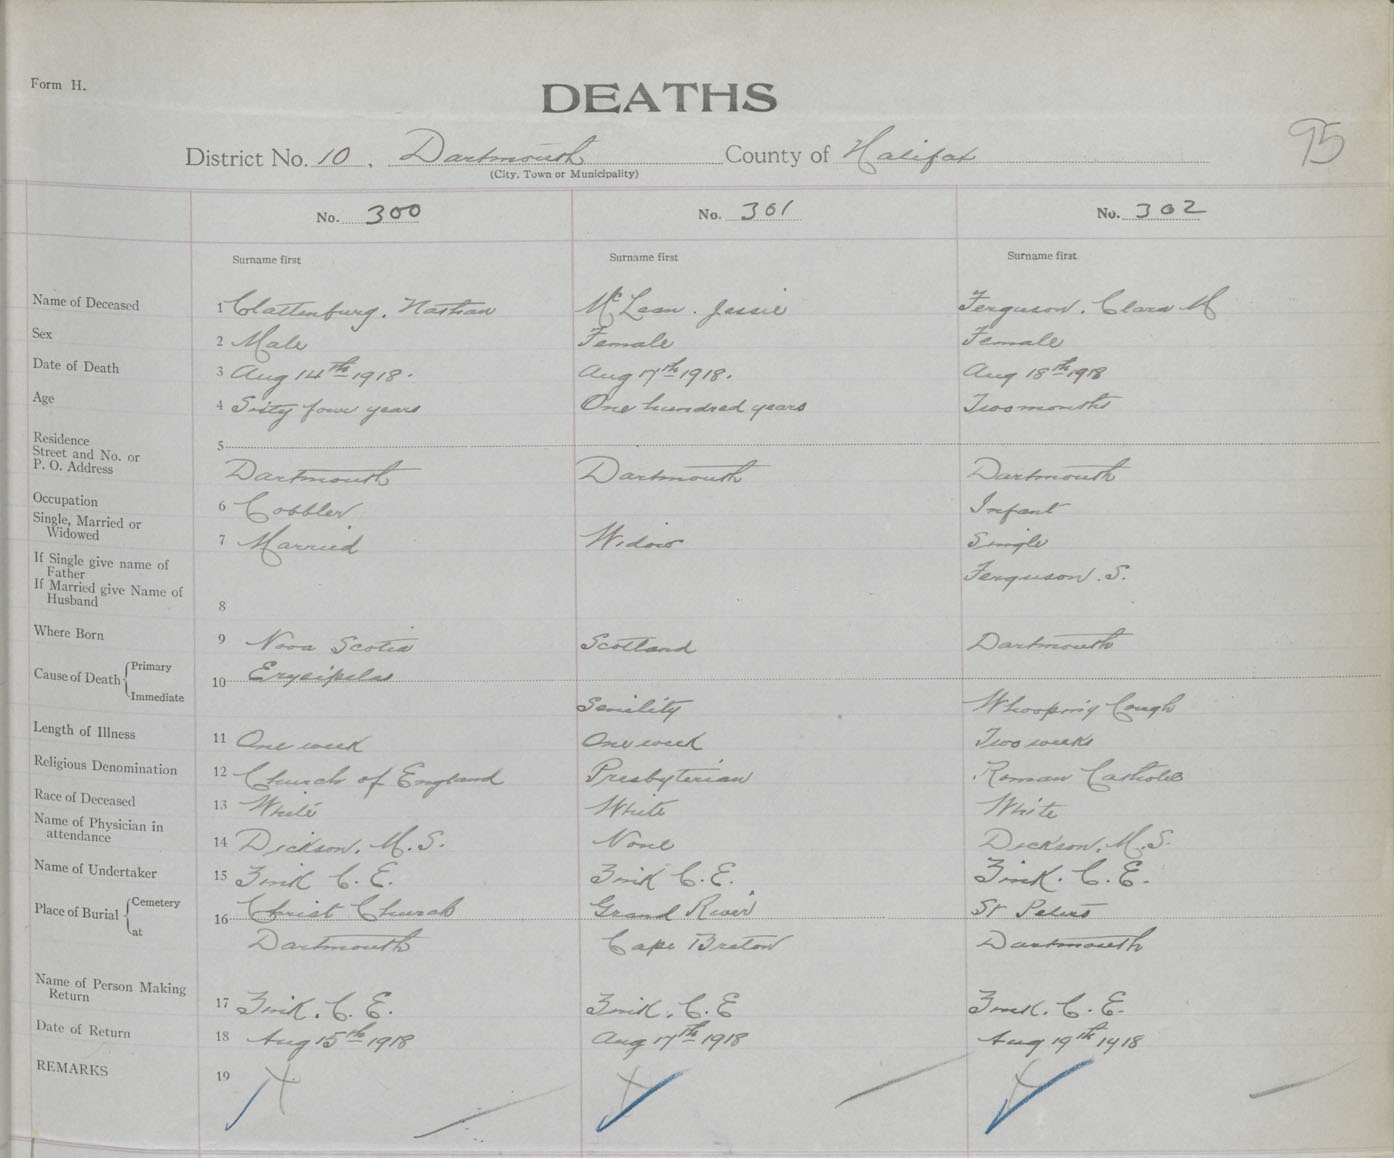 Form H.
DEATHS
95
District No. 10. Dartmouth County of Halifax
(City, Town or Municipality)
No. 300 No. 301 No. 302
Surname first Surname first Surname first
Name of Deceased 1 Clattenburg, Nathan McLean. Jessie Ferguson. Clara M
Sex 2 Male Female Female
Date of Death 3 Aug 14th 1918. Aug 17th 1918. Aug 18th 1918
Age 4 Sixty four years One hundred years Two months
Residence
Street and No. or
P. O. Address 5 Dartmouth Dartmouth Dartmouth
Occupation 6 Cobbler Infant
Single, Married or
Widowed 7 Married Widow Single
If Single give name of
Father Ferguson. S.
If Married give Name of
Husband 8
Where Born 9 Nova Scotia Scotland Dartmouth
Cause of Death Primary 10 Erysipelas
Immediate Senility Whooping Cough
Length of Illness 11 One week One week Two weeks
Religious Denomination 12 Church of England Presbyterian Roman Catholic
Race of Deceased 13 White White White
Name of Physician in
attendance 14 Dickson, M.S. None Dickson, M.S.
Name of Undertaker 15 Zink C. E. Zink C. E. Zink. C. E.
Place of Burial Cemetery 16 Christ Church Grand River St Peters
at Dartmouth Cape Breton Dartmouth
Name of Person Making
Return 17 Zink. C. E. Zink. C. E Zink. C. E.
Date of Return 18 Aug 15th 1918 Aug 17th 1918 Aug 19th 1918
REMARKS 19